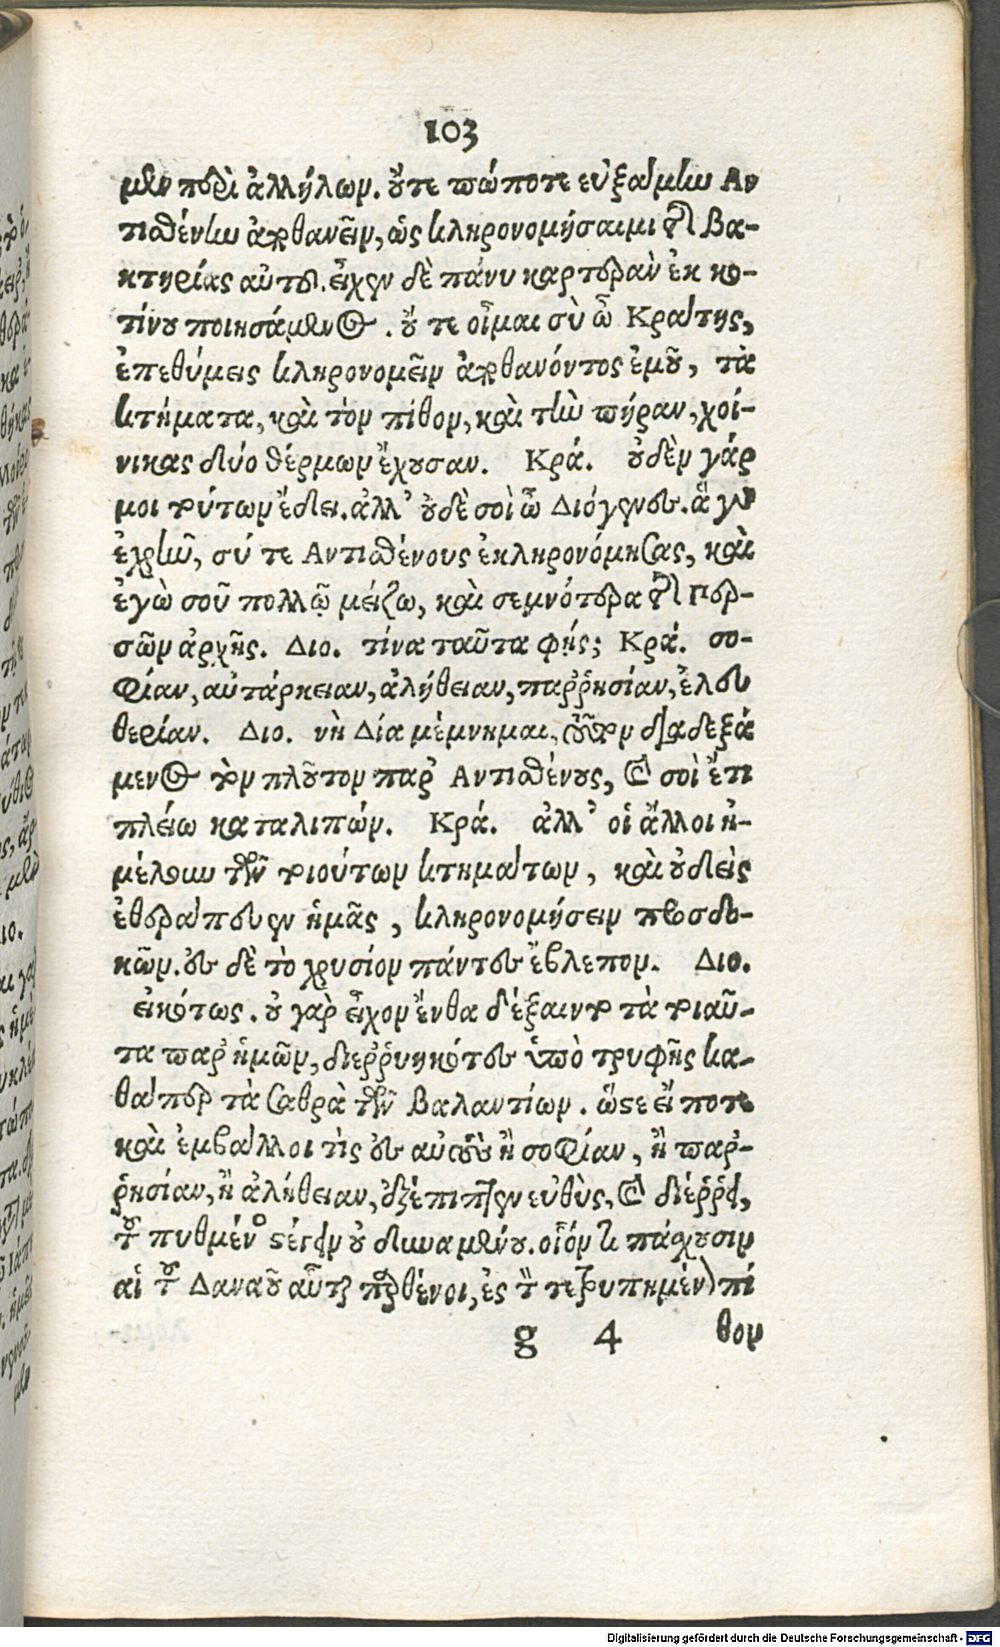 103
μεν περὶ ἀλλήλων. οὔτε πώποτε εὐξάμην Αν
τισθένην ἀποθανεῖν, ὡς κληρονομήσαιμι τῆς Βα-
κτηρίας αὐτοῦ. εἶχεν δὲ πάνυ καρτερὰν ἐκ κο-
τίνου ποιησάμενος. οὔ τε οἶμαι σὺ ὦ Κράτης,
ἐπεθύμεις κληρονομεῖν ἀποθανόντος ἐμοῦ, τὰ
κτήματα, καὶ τὸν πίθον, καὶ τὴν πήραν, χοί-
νικας δύο θέρμων ἔχουσαν. Κρά. οὐδὲν γάρ
μοι τούτων ἔδει. ἀλλ' οὐδὲ σοὶ ὦ Διόγενες. ἃ γὰρ
ἐχρῆν, σύ τε Αντισθένους ἐκληρονόμησας, καὶ
ἐγὼ σοῦ πολλῷ μείζω, καὶ σεμνότερα τῆς Περ-
σῶν ἀρχῆς. Διο. τίνα ταῦτα φής; Κρά. σο-
φίαν, αὐτάρκειαν, ἀλήθειαν, παῤῥησίαν, ἐλευ
θερίαν. Διο. νὴ Δία μέμνημαι, τοῦτον διαδεξά
μενος τὸν πλοῦτον παρ' Αντισθένους, καὶ σοὶ ἔτι
πλείω καταλιπών. Κρά. ἀλλ' οἱ ἄλλοι ἠ-
μέλουν τῶν τοιούτων κτημάτων, καὶ οὐδεὶς
ἐθεράπευεν ἡμᾶς, κληρονομήσειν προσδο-
κῶν. ἐς δὲ τὸ χρυσίον πάντες ἔβλεπον. Διο.
εἰκότως. οὐ γὰρ εἶχον ἔνθα δέξαιντο τὰ τοιαῦ-
τα παρ' ἡμῶν, διεῤῥυηκότες ὑπὸ τρυφῆς κα-
θάπερ τὰ σαθρὰ τῶν Βαλαντίων. ὥστε εἴ ποτε
καὶ ἐμβάλλοι τὶς ἐς αὐτοὺς ἢ σοφίαν, ἢ παῤ-
ῥησίαν, ἢ ἀλήθειαν, ἐξέπιπτεν εὐθὺς, καὶ διέῤῥει,
τοῦ πυθμένος στέγειν οὐ δυναμένου. οἷόν τι πάσχουσιν
αἱ τοῦ Δαναοῦ αὗται παρθένοι, ἐς τὸν τετρυπημένον πί
g 4 θον
Digitalisierung gefördert durch die Deutsche Forschungsgemeinschaft - DFG